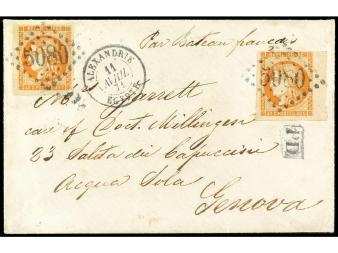 5080
5080
ALEXANDRIE
11
AVRIL
71
EGYPTE
Par Bateau français
Mrs Garrett
care of Doct. Millingen
23 Salita dei Cappuccini
Acqua Sola
Genova
PD